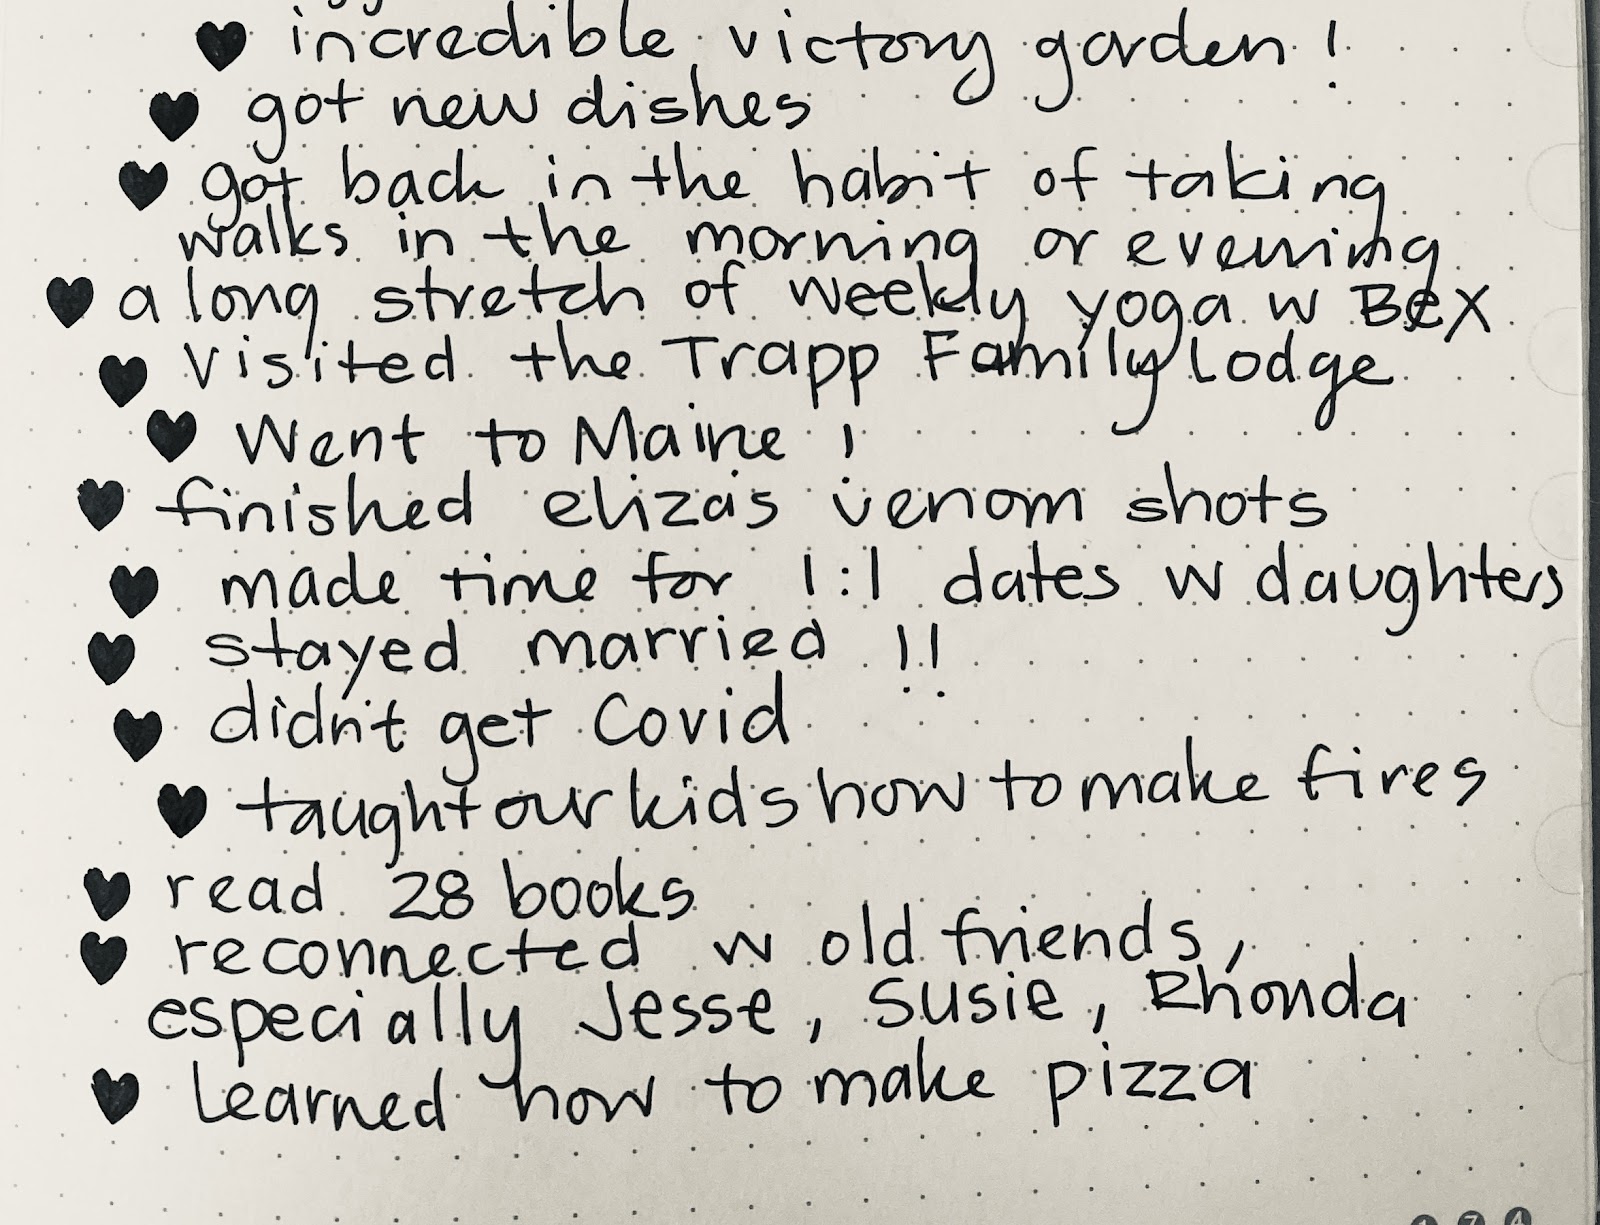 ♥ incredible victory garden!
♥ got new dishes
♥ got back in the habit of taking
walks in the morning or evening
♥ a long stretch of weekly yoga w Bex
♥ visited the Trapp Family Lodge
♥ Went to Maine!
♥ finished eliza's venom shots
♥ made time for 1:1 dates w daughters
♥ stayed married !!
♥ didn't get Covid
♥ taught our kids how to make fires
♥ read 28 books
♥ reconnected w old friends,
especially Jesse, Susie, Rhonda
♥ Learned how to make pizza